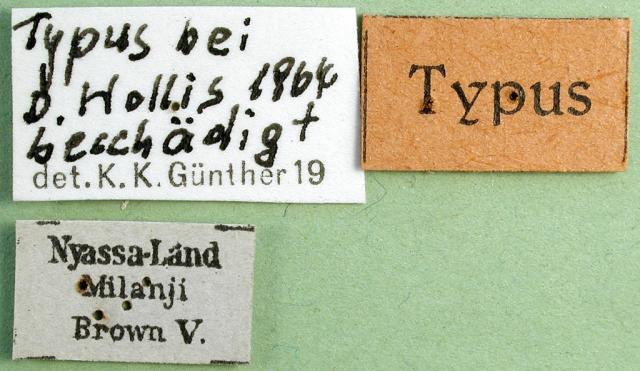 Typus bei
D. Hollis 1964
beschädigt
det. K. K. Günther 19
Typus
Nyassa-Land
Milanji
Brown V.